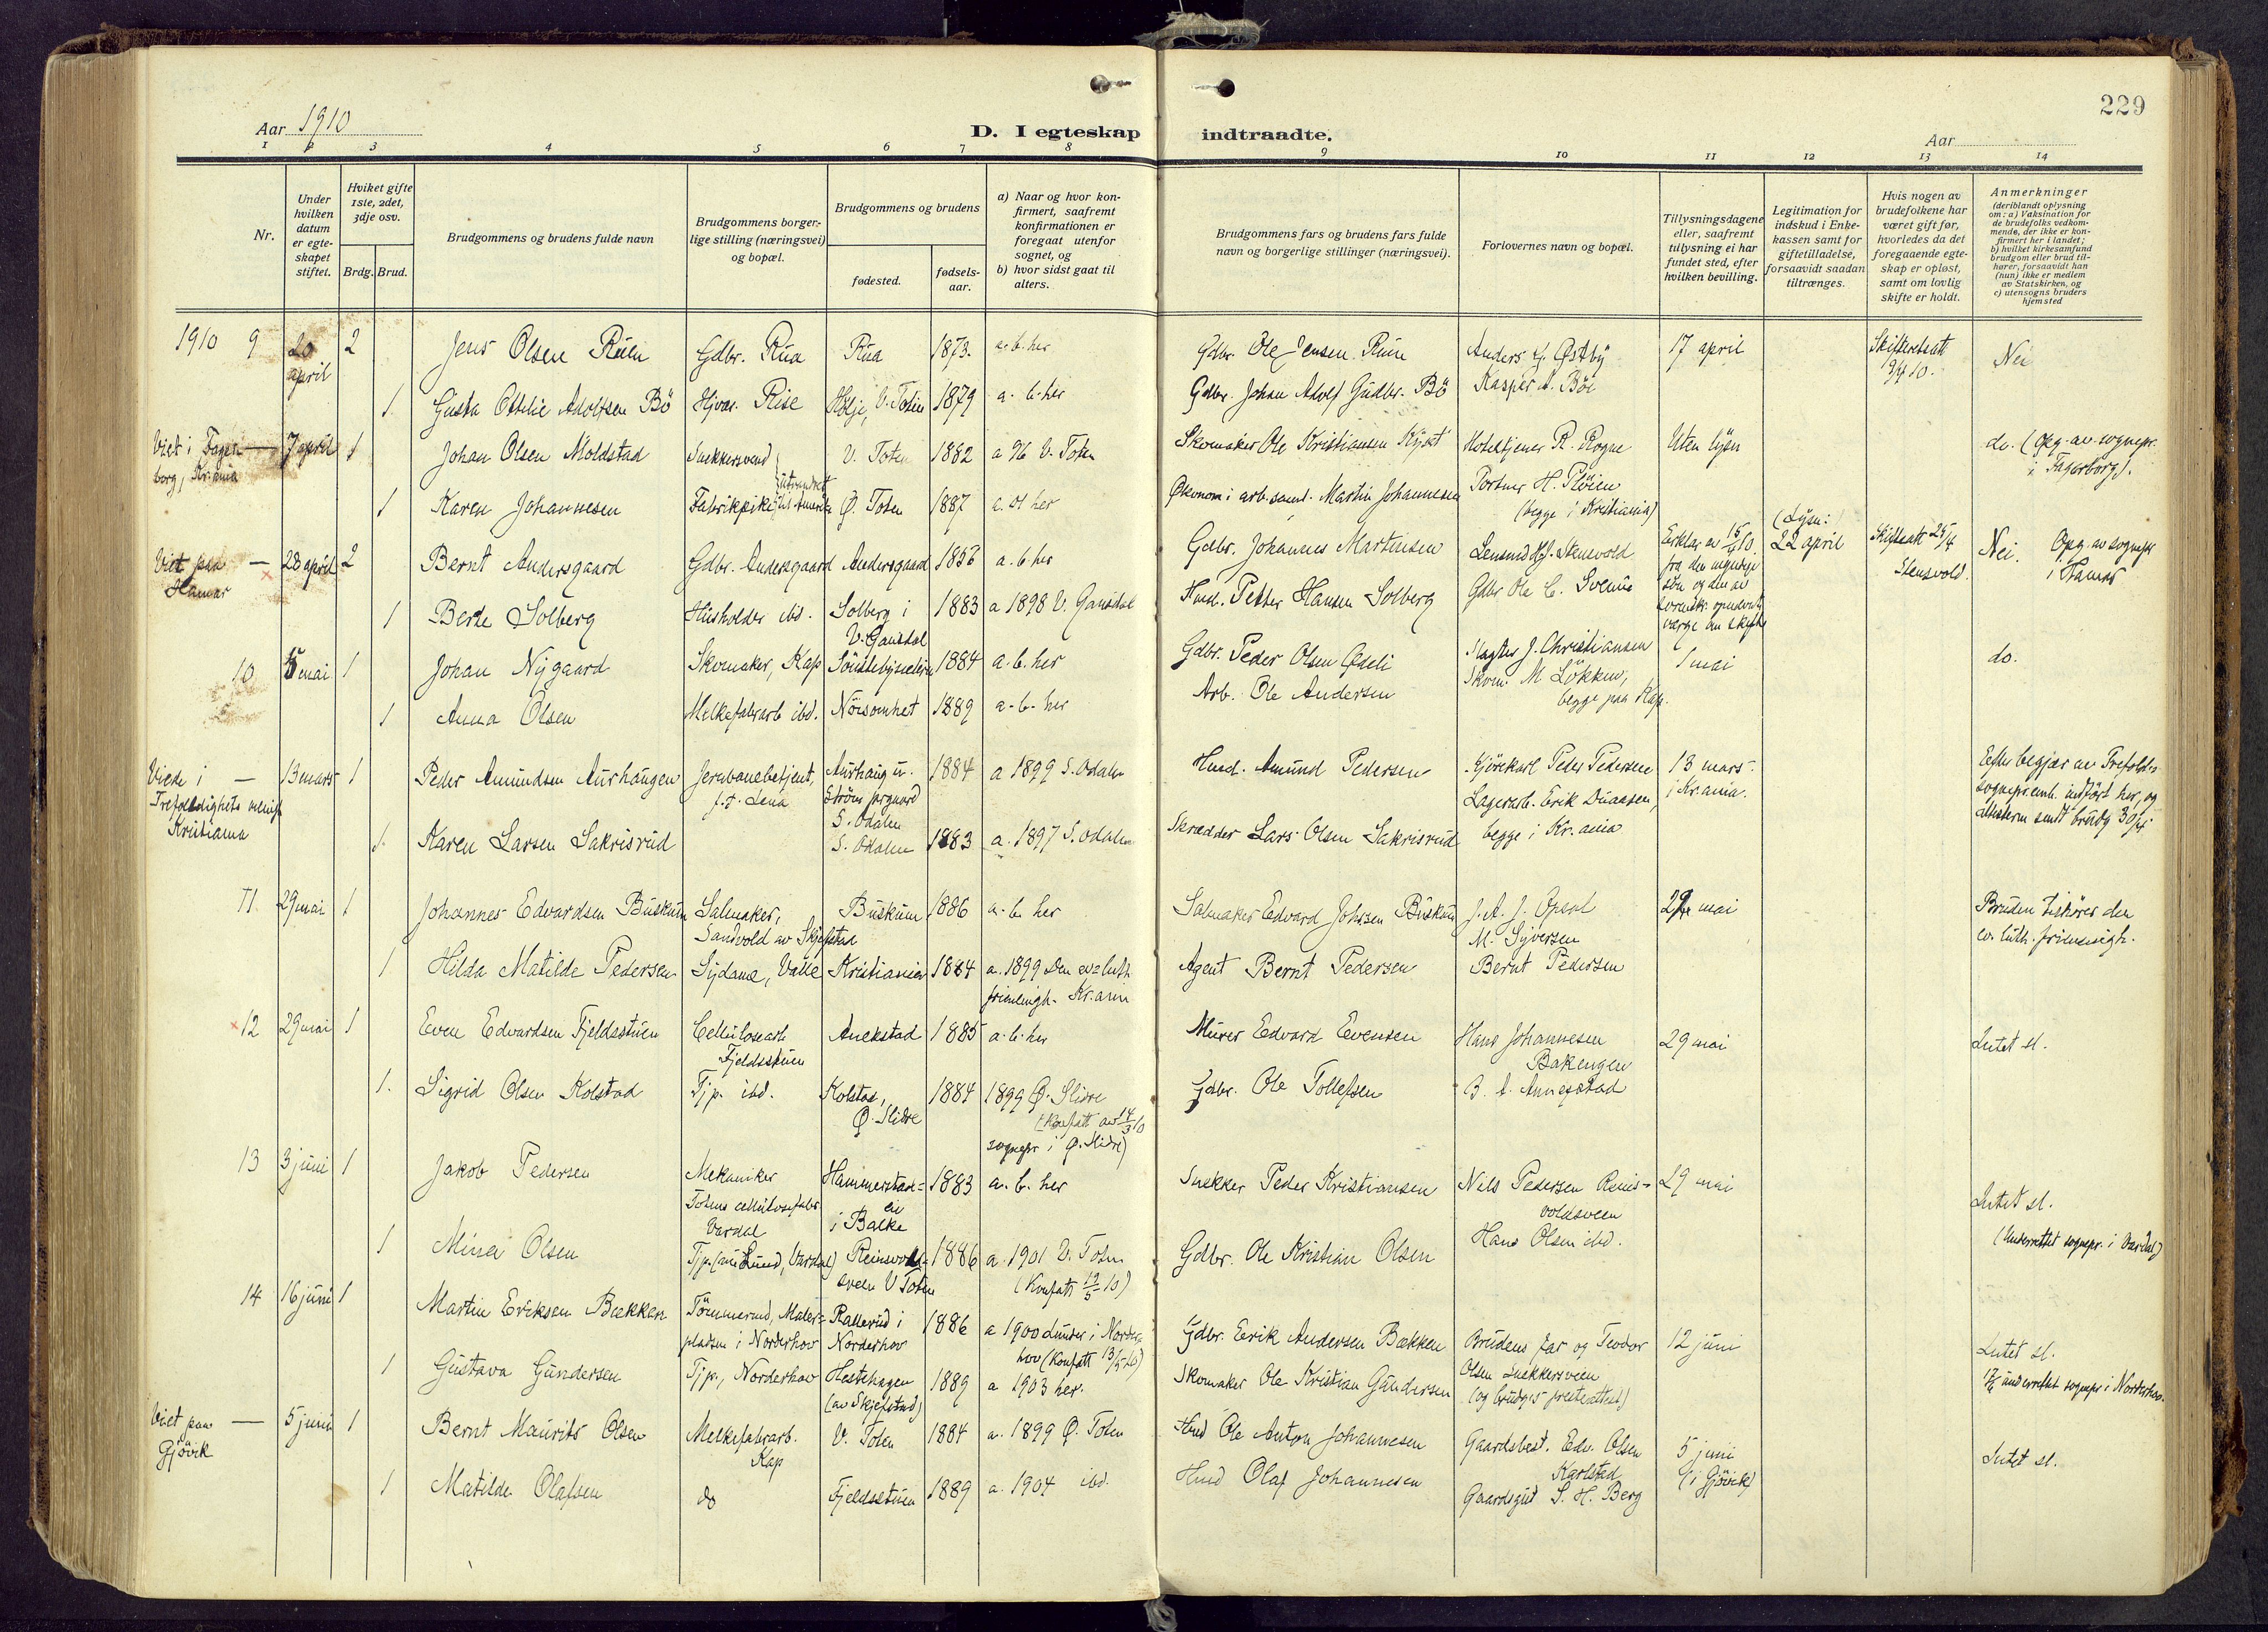 229
Aar 1910
D. I egteskap indtraadte.
Aar
1 2 3 4 5 6 7 8 9 10 11 12 13 14
Nr.
Under hvilken datum er egteskapet stiftet.
Hviket gifte 1ste, 2det, 3dje osv.
Brdg. Brud.
Brudgommens og brudens fulde navn
Brudgommens borgerlige stilling (næringsvei) og bopæl.
Brudgommens og brudens
fødested.
fødselsaar.
a) Naar og hvor konfirmert, saafremt konfirmationen er foregaat utenfor sognet, og
b) hvor sidst gaat til alters.
Brudgommens fars og brudens fars fulde navn og borgerlige stillinger (næringsvei).
Forlovernes navn og bopæl.
Tillysningsdagene eller, saafremt tillysning ei har fundet sted, efter hvilken bevilling.
Legitimation for indskud i Enkekassen samt for giftetilladelse, forsaavidt saadan tiltrænges.
Hvis nogen av brudefolkene har været gift før, hvorledes da det foregaaende egteskap er opløst, samt om lovlig skifte er holdt.
Anmerkninger
(deriblandt oplysning om: a) Vaksination for de brudefolks vedkommende, der ikke er konfirmert her i landet; b) hvilket kirkesamfund brudgom eller brud tilhører, forsaavidt han (hun) ikke er medlem av Statskirken, og c) utensogns bruders hjemsted
1910 9 20 april 2 Jens Olsen Ruen Gdbr. Rua Rua 1873. a. b. her Gdbr. Ole Jensen Ruen Anders G. Østby 17 april Skifteratt Nei
1 Gusta Ottilie Adolfsen Bö Hjvær. Rise V. Toten 1879 a. b. her Gdbr. Johan Adolf Gudbr. Bö Kasper A. Böe
Viet i Fagerborg, Kr.ania — 7 april 1 Johan Olsen Moldstad Snekkersvend V. Toten 1882 a 96 V. Toten Skomaker Ole Kristiansen Hoteltjener R. Rogne Uten lysn do. (Opg. av sognepr. i Fagerborg).
1 Karen Johannesen Fabrikpike Ø. Toten 1887 a. 01 her Økonom i arb.saml. Martin Johannesen Portner H. Pløien (begge i Kristiania)
Viet paa Hamar — 28 april 2 Bernt Andersgaard Gdbr. Andersgaard Andersgaard 1853 a. b. her Gdbr. Johannes Martinsen Lensmd Stensvold (Lysn: 22 april Skifteatt 25/4 Stensvold. Nei. Opg. av sognepr i Hamar
1 Berte Solberg Husholder ibd. Solberg i V. Gausdal 1883 a 1898 V. Gausdal Husd. Petter Hansen Solberg Gdbr Ole C. Svenna
10 5 mai 1 Johan Nygaard Skomaker, Kap 1884 a. b. her Gdbr. Peder Olsen Ødeli Slagter J. Christiansen 1 mai do.
1 Anna Olsen Melkefabrarb ibd. Nöisomhet 1889 a. b. her Arb. Ole Andersen Skom. M Lökken, begge paa Kap.
Viede i Trefoldighets menigh Kristiania — 13 mars 1 Peder Amundsen Aurhaugen Jernbanebetjent, f.t. Lena Aurhaug u. Ströms prgaard S. Odalen 1884 a 1899 S. Odalen Husd. Amund Pedersen Kjörekarl Peder Pedersen 13 mars i Kr.ania. Efter begjær av Trefold.s sognepr.emb. indført her, og attestern sendt brudg 30/4.
1. Karen Larsen Sakrisrud S. Odalen 1883 a. 1897 S. Odalen Skrædder Lars Olsen Sakrisrud Lagerarb. Erik Duaasen, begge i Kr.ania
11. 29 mai 1 Johannes Edvardsen Buskum Salmaker, Sandvold av Skjefstad Buskum 1886 a. b. her Salmaker Edvard Johnsen Buskum J. A. J. Opsal M. Syversen 29 mai Bruden tilhörer den ev. luth. frimenigh.
1 Hilda Matilde Pedersen Sydame, Valle Kristiania 1884 a. 1899 Den ev=luth frimenigh. Kr.ania Agent Bernt Pedersen Bernt Pedersen
12 29 mai 1 Even Edvardsen Fjeldsstuen Cellulosearb Fjeldsstuen Anekstad 1885 a. b. her Murer Edvard Evensen Hans Johannesen Bakengen 29 mai Intet sl.
1. Sigrid Olsen Kolstad Tjp. ibd. Kolstad, Ø. Slidre 1884 1899 Ø. Slidre (Konfatt av 14/3 10 sognepr i Ø. Slidre) Gdbr. Ole Tollefsen B. A. Annekstad
13 3 juni 1 Jakob Pedersen Mekaniker Totens cellulosefabr Vardal Hammerstad= i Balke 1883 a. b. her Snekker Peder Kristiansen Nils Pedersen Reinsvoldsveen 29 mai Intet sl.
1 Mina Olsen Tjp. (Lund, Vardal) Reinsvoldsveen V Toten 1886 a. 1901 V. Toten (Konfatt 12/5 10) Gdbr. Ole Kristian Olsen Hans Olsen ibd. (Underrettet sognepr. i Vardal)
14 16 juni 1 Martin Eriksen Bækken Tömmermd, i Norderhov Rallerud i Norderhov 1886 a 1900 i Norderhov (Konfatt 13/5 10) Gdbr. Erik Andersen Bækken Brudens far og Teodor Olsen Snekkersveen 12 juni Intet sl.
1 Gustava Gundersen Tjp., Norderhov Hestehagen (av Skjefstad) 1889 a 1903 her. Skomaker Ole Kristian Gundersen (og brudg.s presteattest) underrettet sognepr i Norderhov.
Viet paa Gjövik — 5 juni 1 Bernt Maurits Olsen Melkefabrarb. Kap V. Toten 1884 a. 1899 Ø. Toten Husd Ole Anton Johannesen Gaardsbest. Edv. Olsen Karlstad 5 juni (i Gjövik) Intet sl.
1 Matilde Olafsen do Fjeldsstuen 1889 a. 1904 ibd. Husd Olaf Johannesen Gaardsgut S. H. Berg